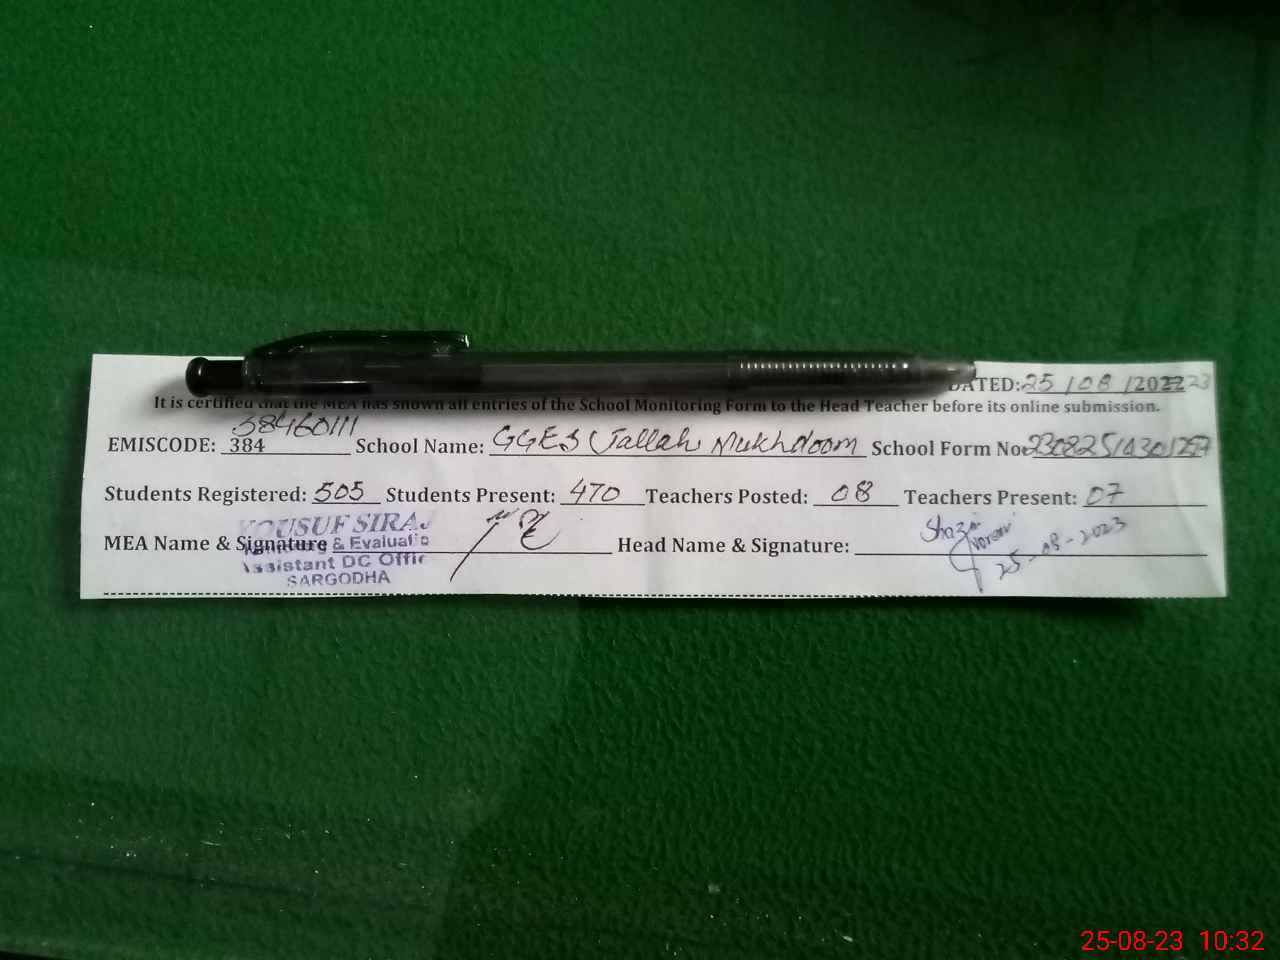 DATED: 25/08/2022 23
It is certified that the MEA has shown all entries of the School Monitoring Form to the Head Teacher before its online submission.
38460111
EMISCODE: 384 School Name: GGES Jallah Mukhdoom School Form No:
Students Registered: 505 Students Present: 470 Teachers Posted: 08 Teachers Present: 07
MEA Name & Signature Head Name & Signature:
YOUSUF SIRAJ
& Evaluatio
Assistant DC Offic
SARGODHA
Shazia
25-08-2023
25-08-23 10:32